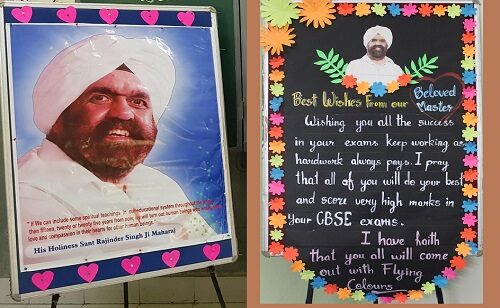 " If We can include some spiritual teachings in our educational system throughout the
than fifteen, twenty or twenty five years from now, we will turn out human beings who
love and compassion in their hearts for other human beings."
His Holiness Sant Rajinder Singh Ji Maharaj
Best Wishes From our
Beloved
Master
Wishing you all the success
in your exams. keep working as
hardwork always pays. I pray
that all of you will do your best
and score very high marks in
your CBSE exams.
I have haith
that you all will come
out with Flying
Colours